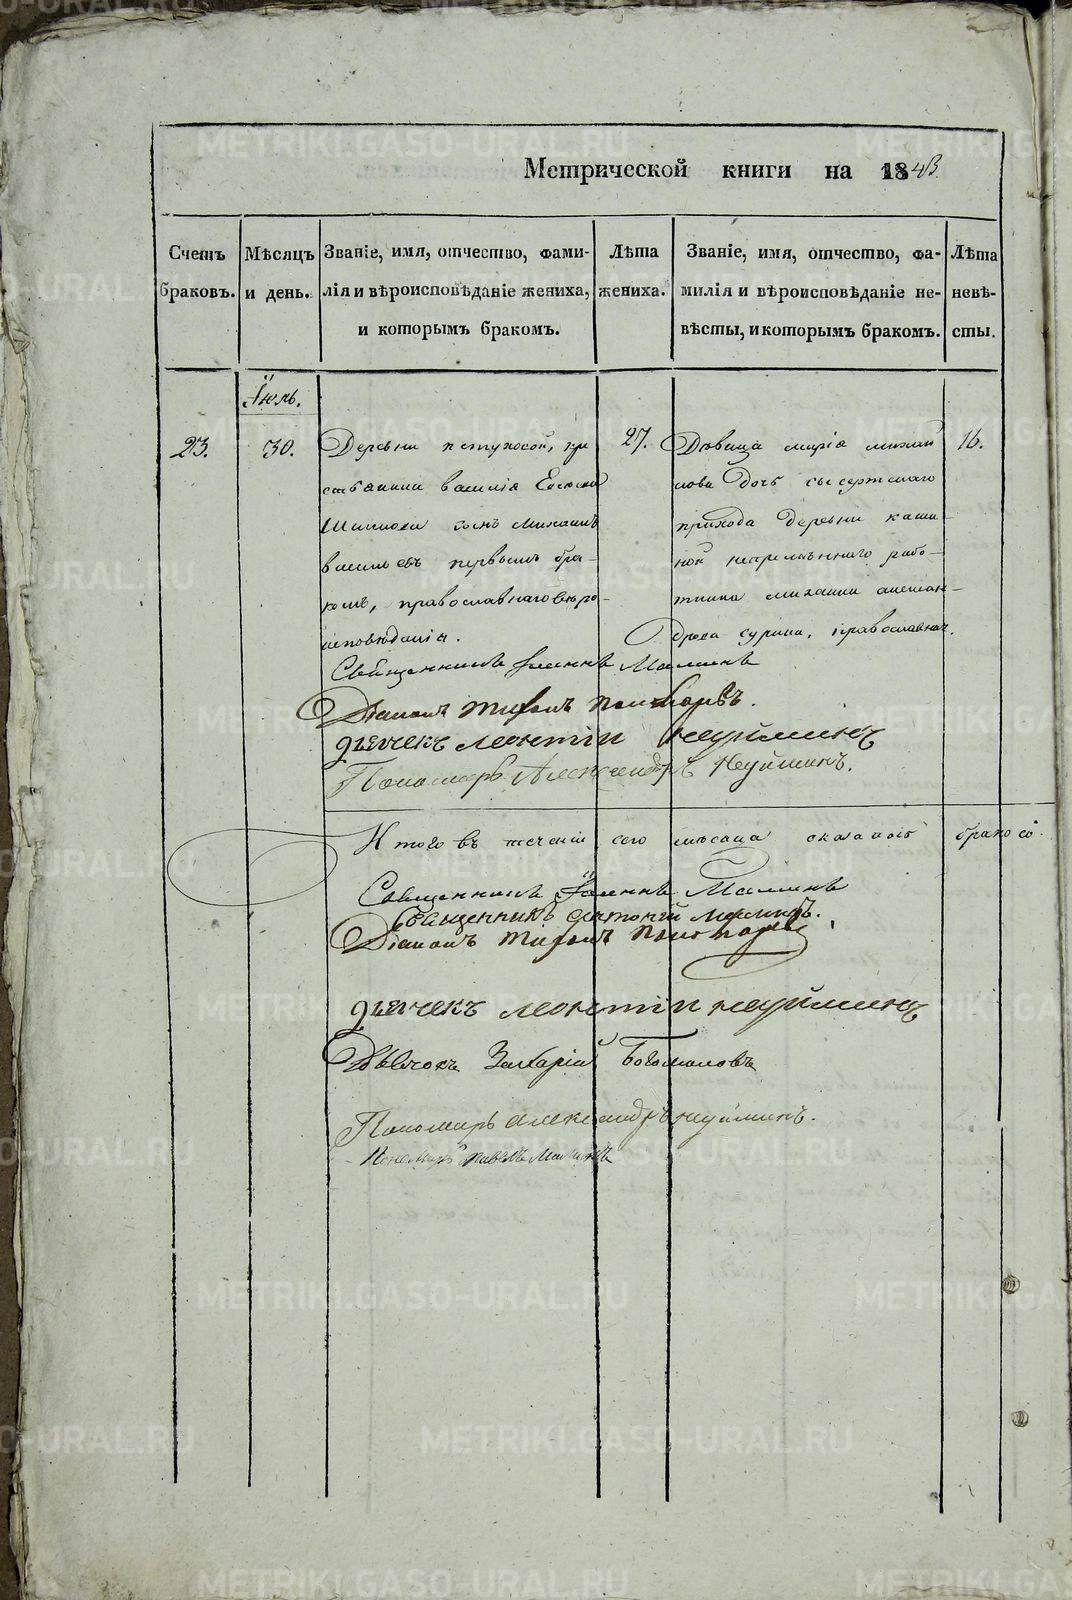 Метрической книги на 1843
Счетъ браковъ.
Мѣсяцъ и день.
Званіе, имя, отчество, фами-
лія и вѣроисповѣданіе жениха,
и которымъ бракомъ.
Лѣта
жениха.
Званіе, имя, отчество, фа-
милія и вѣроисповѣданіе не-
вѣсты, и которымъ бракомъ.
Лѣта
невѣ-
сты.
Іюль.
23.
30.
Деревни петуховой, кре
стьянина василія
сынъ михаилъ
васильевъ первымъ бра-
комъ, православнаго вѣро-
исповѣданія.
27.
Дѣвица марія михай
лова дочь сысертскаго
прихода деревни каши
ной непремѣннаго рабо-
тника михаила алексан-
дрова сурина, православнаг.
16.
Священникъ Іоаннъ Малинъ
Діаконъ Тихонъ Пономаревъ.
дьячекъ леонтіи неуйминъ
Пономарь Александръ Неуйминъ.
Итого въ теченіи сего мѣсяца браковъ
Священникъ Іоаннъ Малинъ
Священникъ
Діаконъ Тихонъ Пономаревъ
дьячекъ леонтіи неуйминъ
Дьячокъ Захарій Богомоловъ
Пономарь александръ неуйминъ.
Пономарь павелъ
METRIKI.GASO-URAL.RU